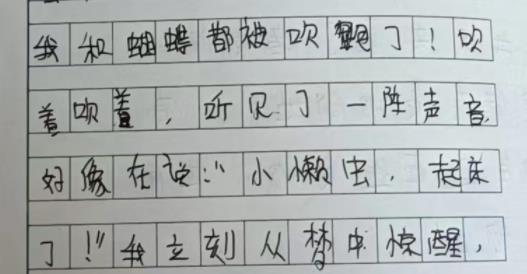 我和蝴蝶都被吹翻了！吹
着吹着，听见了一阵声音，
好像在说：“小懒虫，起床
了！”我立刻从梦中惊醒，